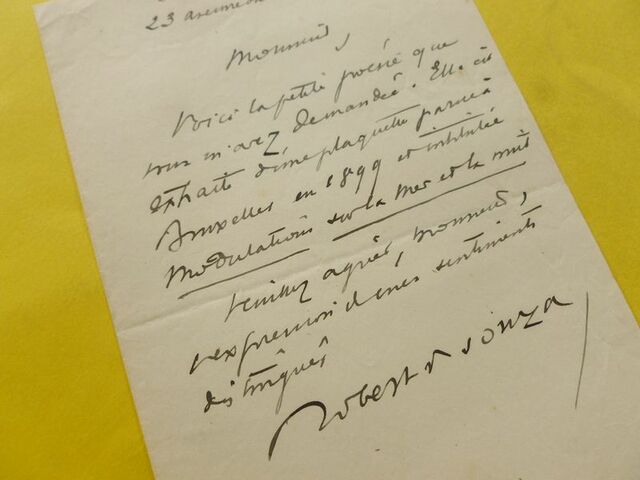 23 avenue
Monsieur,
Voici la petite poésie que
vous m'avez demandée. Elle est
extraite d'une plaquette parue à
Bruxelles en 1899 et intitulée
Modulations sur la mer et la nuit
Veuillez agréer, monsieur,
l'expression de mes sentiments
distingués
Robert de Souza